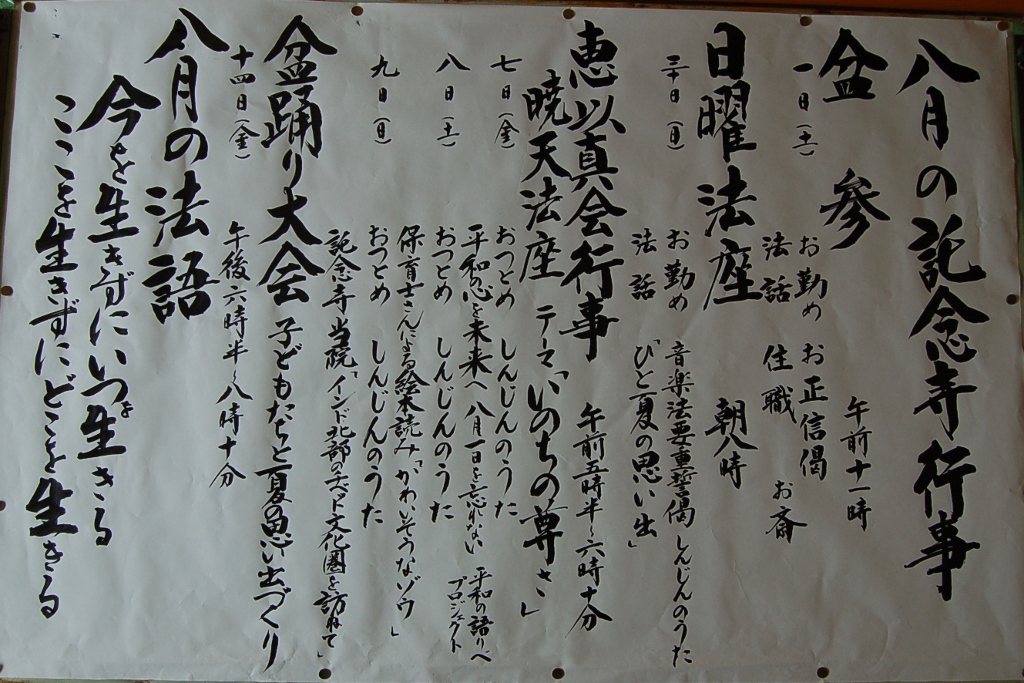 八月の託念寺行事
盆参 午前十一時
一日(土) お勤め お正信偈 お斎
法話 住職
日曜法座 朝八時
三十日(日) お勤め 音楽法要重誓偈 しんじんのうた
法話 「ひと夏の思い出」
恵以真会行事 午前五時半~六時十分
暁天法座 テーマ「いのちの尊さ」
七日(金) おつとめ しんじんのうた
平和の心を未来へ 八月一日を忘れない 平和の語りべプロジェクト
八日(土) おつとめ しんじんのうた
保育士さんによる絵本読み「かわいそうなゾウ」
九日(日) おつとめ しんじんのうた
託念寺 当院「インド北部のチベット文化圏を訪ねて」
盆踊り大会 子どもたちと夏の思い出づくり
十四日(金) 午後六時半~八時十分
八月の法語
今を生きずにいつを生きる
ここを生きずにどこを生きる